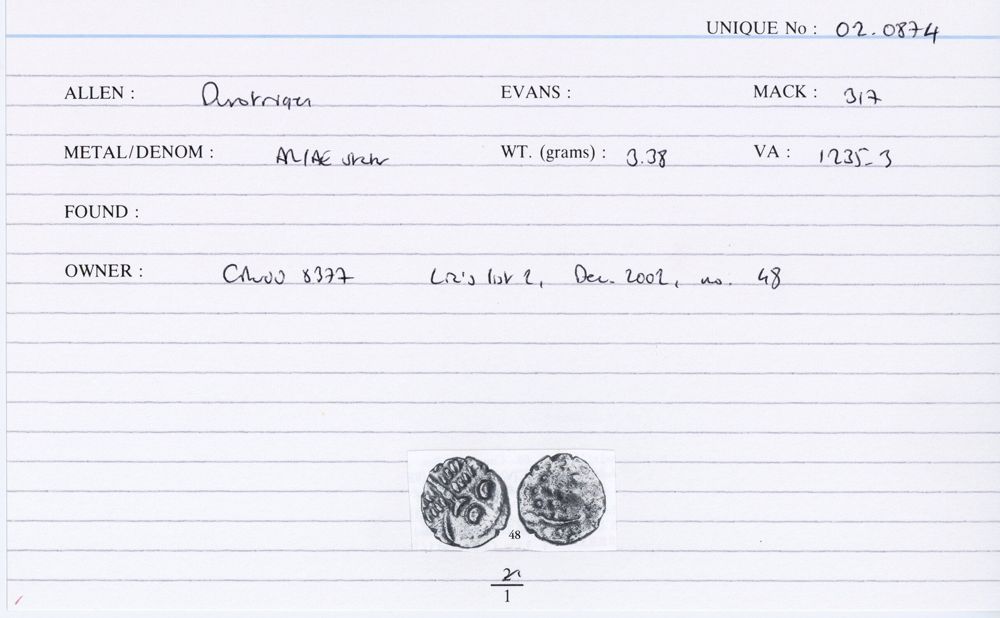 UNIQUE No : 02.0874
ALLEN : Durotrigan EVANS : MACK : 317
METAL/DENOM : AR/AE stater WT. (grams) : 3.38 VA : 1235-3
FOUND :
OWNER : 8377 Liz's list 2, Dec. 2002, no. 48
48
1